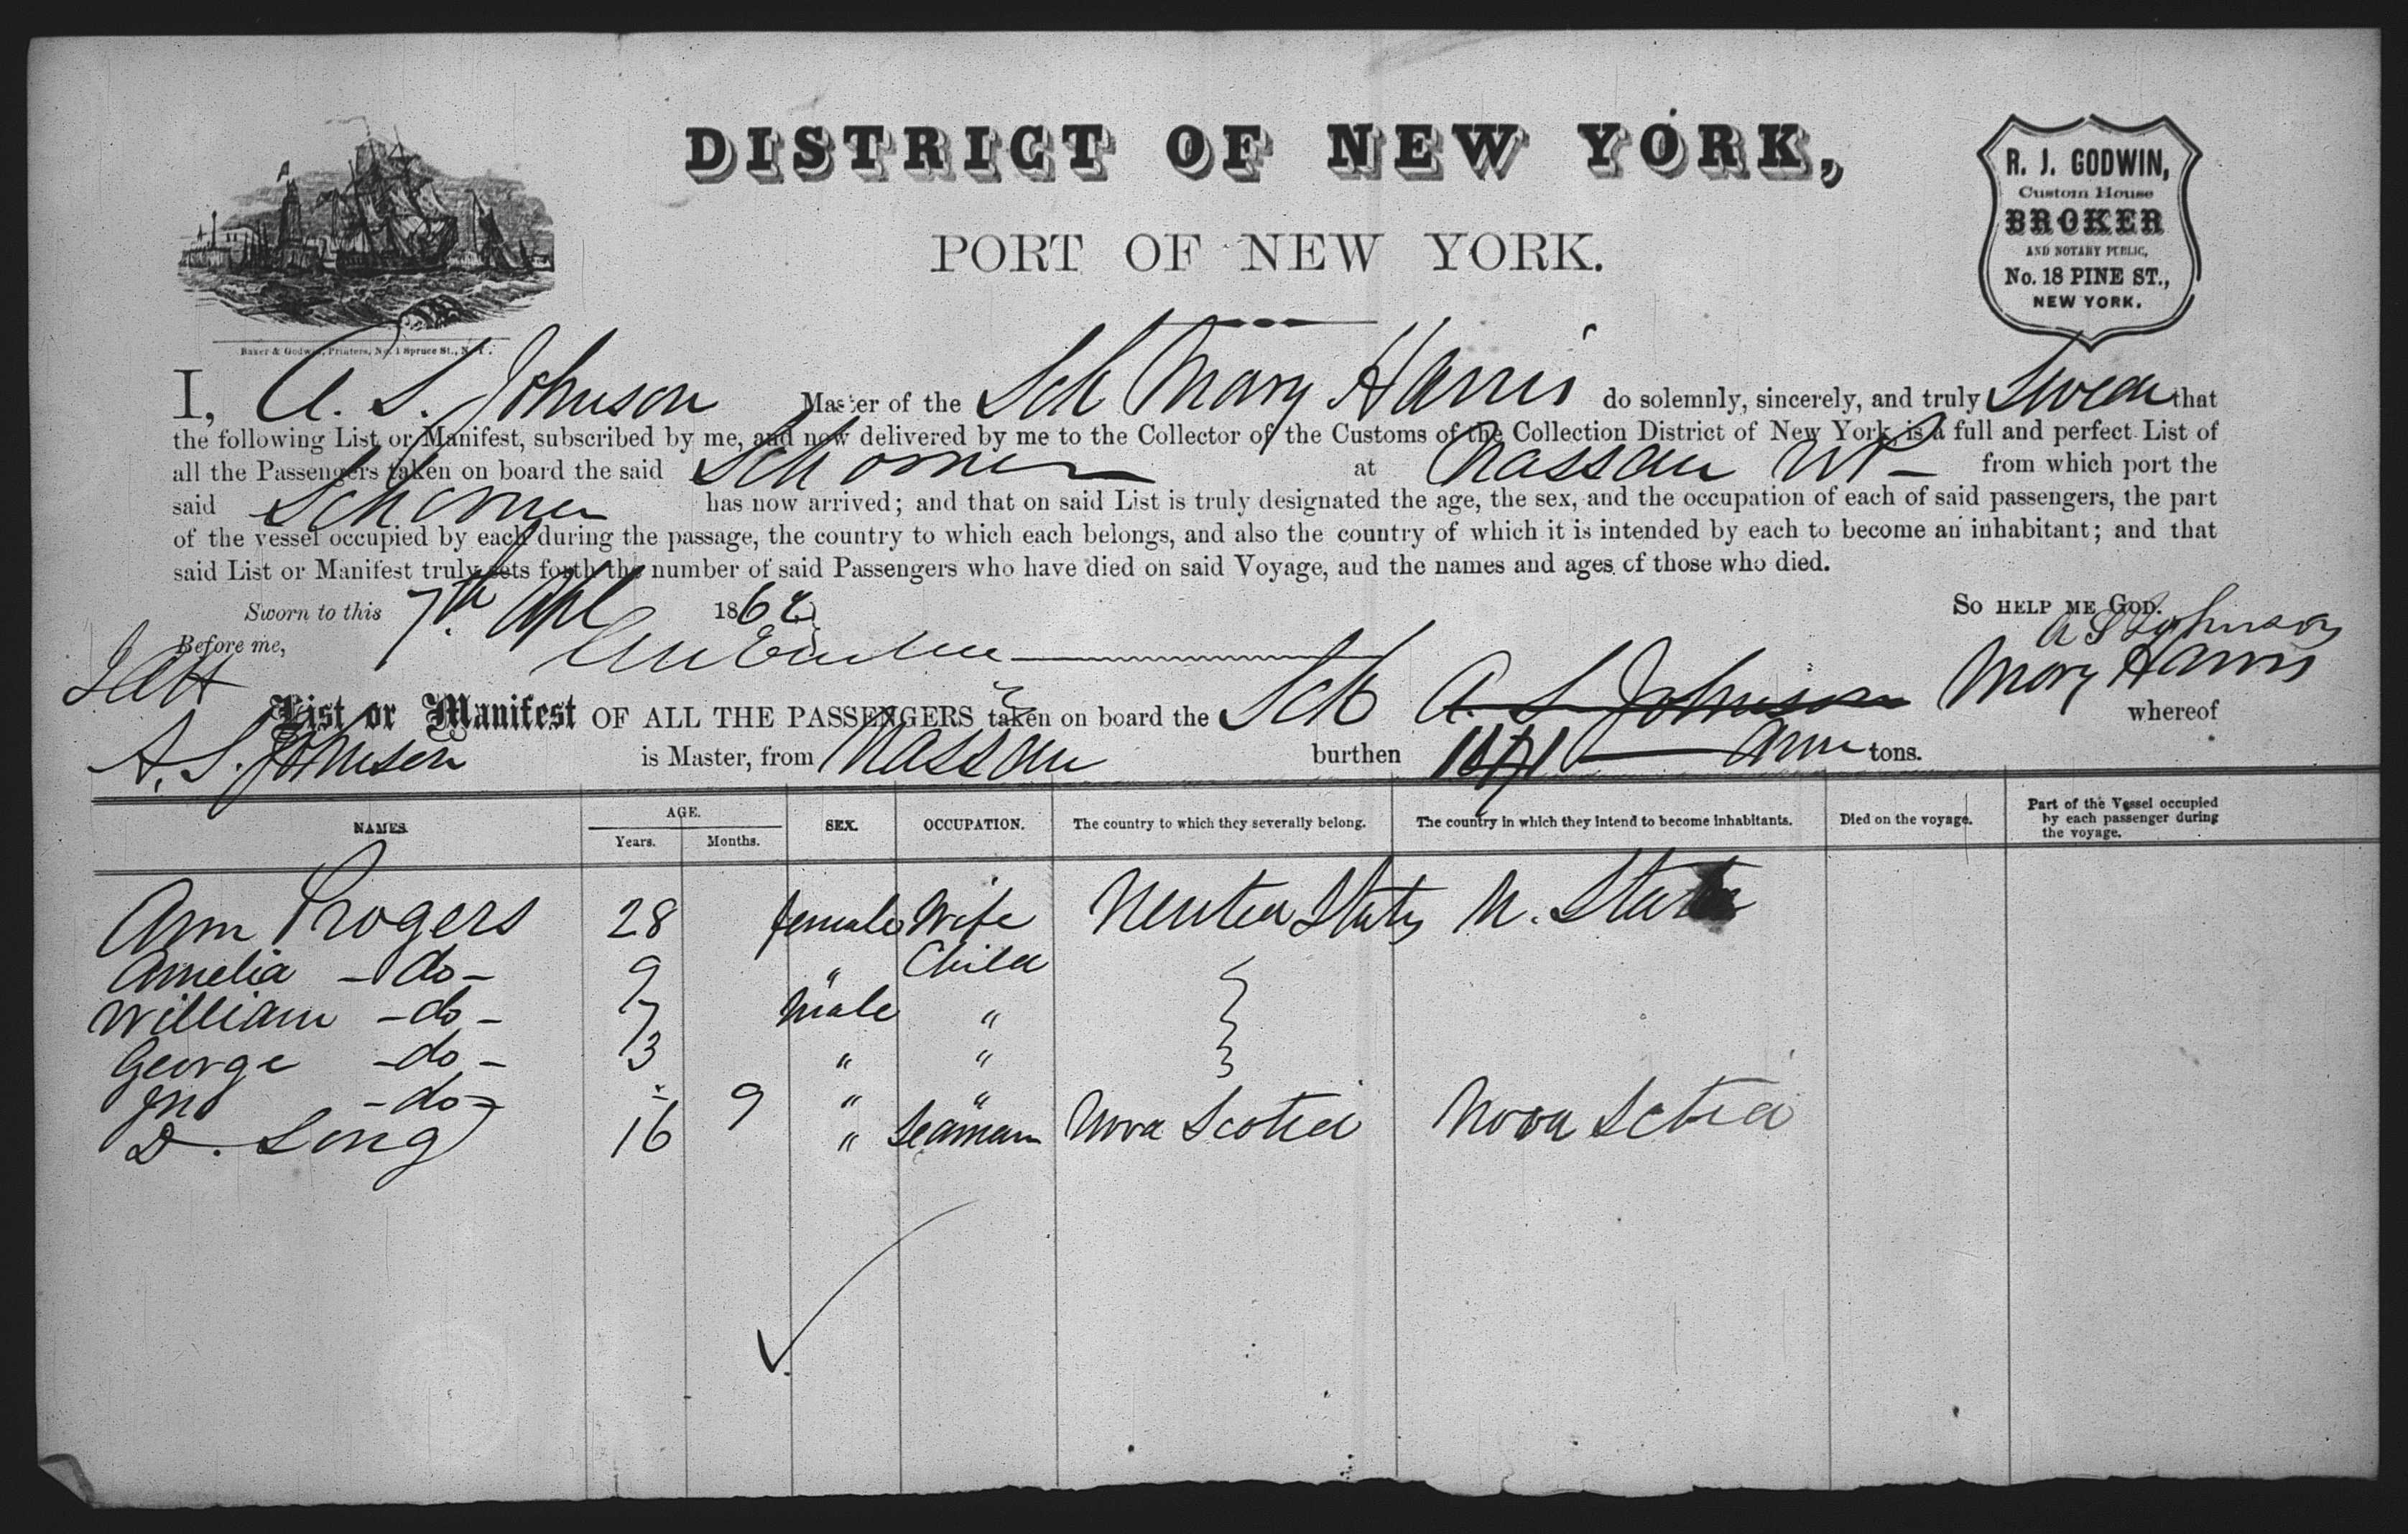 DISTRICT OF NEW YORK,
PORT OF NEW YORK.
R. J. GODWIN,
Custom House
BROKER
AND NOTARY PUBLIC,
No. 18 PINE ST.,
NEW YORK.
Baker & Godwin, Printers, No. 1 Spruce St., N. Y.
I, A. S. Johnson Master of the Sch Mary Harris do solemnly, sincerely, and truly Swear that
the following List or Manifest, subscribed by me, and now delivered by me to the Collector of the Customs of the Collection District of New York, is a full and perfect List of
all the Passengers taken on board the said Schooner at Nassau NP from which port the
said Schooner has now arrived; and that on said List is truly designated the age, the sex, and the occupation of each of said passengers, the part
of the vessel occupied by each during the passage, the country to which each belongs, and also the country of which it is intended by each to become an inhabitant; and that
said List or Manifest truly sets forth the number of said Passengers who have died on said Voyage, and the names and ages of those who died.
Sworn to this 7th Apl 186 SO HELP ME GOD.
Before me, A S Johnson
List or Manifest OF ALL THE PASSENGERS taken on board the Sch A. S. Johnson Mary Harris whereof
A. S. Johnson is Master, from Nassau burthen tons.
NAMES. AGE. Years. Months. SEX. OCCUPATION. The country to which they severally belong. The country in which they intend to become inhabitants. Died on the voyage. Part of the Vessel occupied by each passenger during the voyage.
Ann Rogers 28 female Wife United States U. States
Amelia - do - 9 " Child
William - do - 7 Male "
George - do - 3 " "
Jno - do - 9 " "
D. Long 16 " Seaman Nova Scotia Nova Scotia